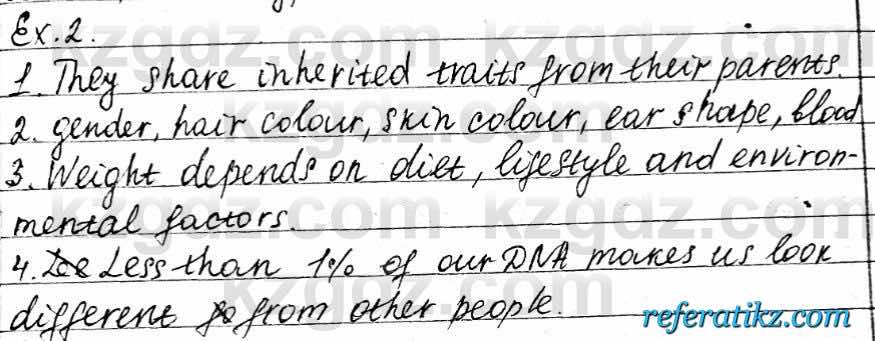 Ex. 2.
1. They share inherited traits from their parents.
2. gender, hair colour, skin colour, ear shape, blood
3. Weight depends on diet, lifestyle and environ-
mental factors.
4. Less than 1% of our DNA makes us look
different from other people.
kzgdz.com
referatikz.com